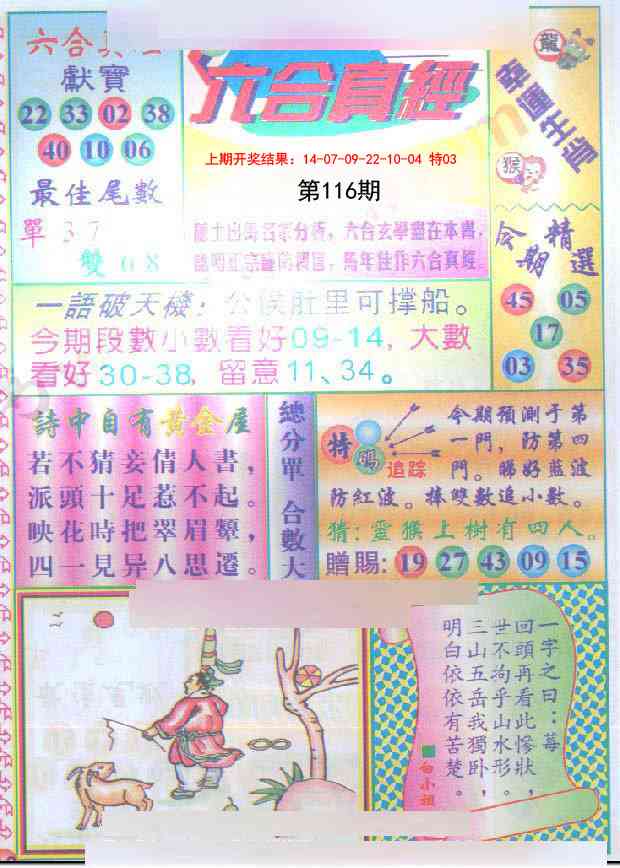 六合真
獻寶
22 33 02 38
40 10 06
最佳尾數
單 3 7
雙 6 8
六合真經
上期开奖结果：14-07-09-22-10-04 特03
第116期
六合玄學盡在本書，
馬年佳作六合真經
龍
幸運生肖
猴
今期精選
45 05
17
03 35
一語破天機：公侯肚里可撑船。
今期段數小數看好09-14，大數
看好30-38，留意11、34。
詩中自有黃金屋
若不猜妾倩人書，
派頭十足惹不起。
映花時把翠眉顰，
四一見异八思遷。
總分單 合數大
特碼
追踪
今期預測于第
一門，防第四
門。睇好藍波
防紅波。捧雙數追小數。
猜：靈猴上樹有四人。
贈賜：19 27 43 09 15
一字之曰：莓
回頭再看此慘狀，
世不拘乎山水形。
三山五岳我獨卧，
明白依依有苦楚。
白小姐